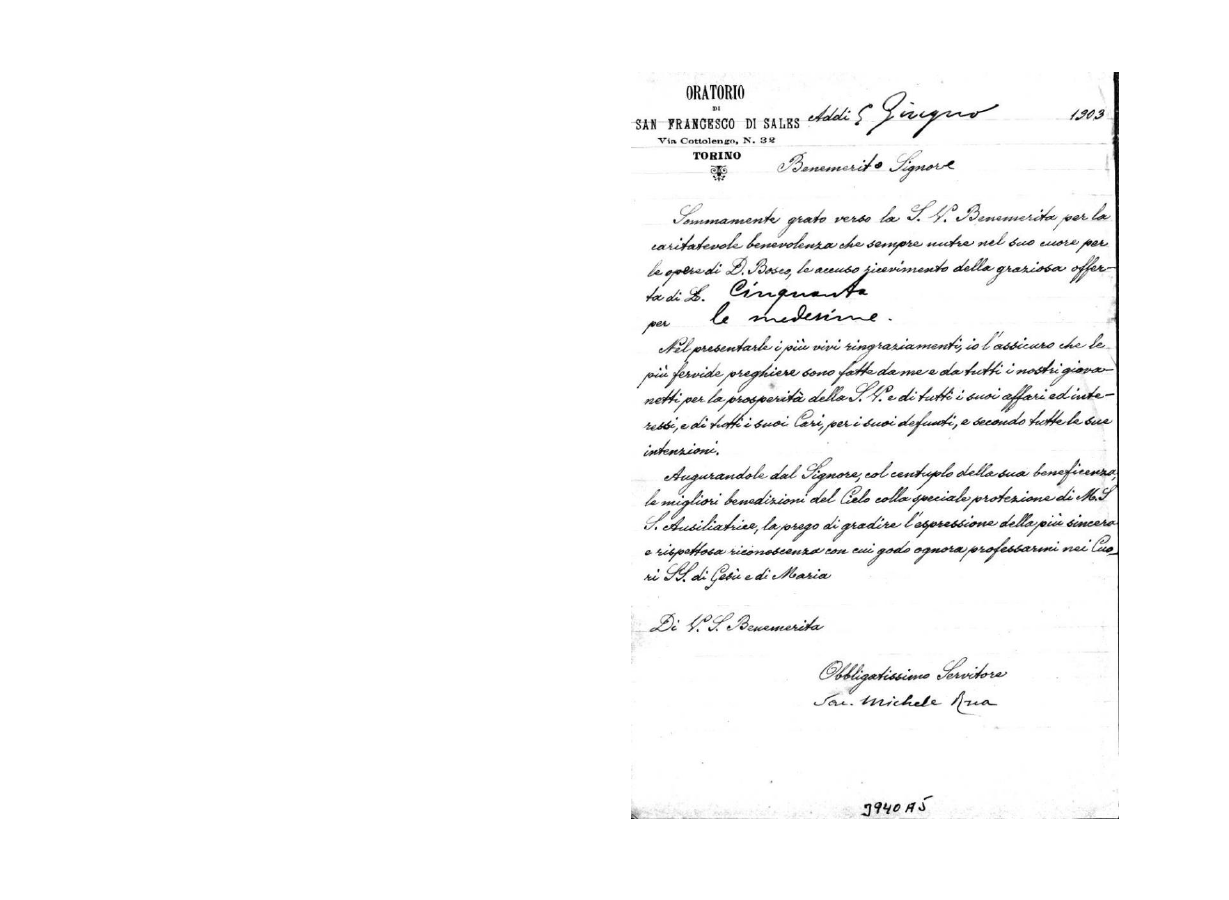 ORATORIO
DI
SAN FRANCESCO DI SALES
Via Cottolengo, N. 32
TORINO
Addì 5 Giugno 1903
Benemerito Signore
Sommamente grato verso la S. V. Benemerita per la
caritatevole benevolenza che sempre nutre nel suo cuore per
le opere di D. Bosco, le accuso ricevimento della graziosa offer-
ta di L. Cinquanta
per le medesime.
Nel presentarle i più vivi ringraziamenti, io l'assicuro che le
più fervide preghiere sono fatte da me e da tutti i nostri giova-
netti per la prosperità della S. V. e di tutti i suoi affari ed inte-
ressi, e di tutti i suoi Cari, per i suoi defunti, e secondo tutte le sue
intenzioni.
Augurandole dal Signore, col centuplo della sua beneficenza,
le migliori benedizioni del Cielo colla speciale protezione di M. S
S. Ausiliatrice, la prego di gradire l'espressione della più sincera
e rispettosa riconoscenza con cui godo ognora professarmi nei Cuo-
ri SS. di Gesù e di Maria
Di V. S. Benemerita
Obbligatissimo Servitore
Sac. Michele Rua
3940 A5